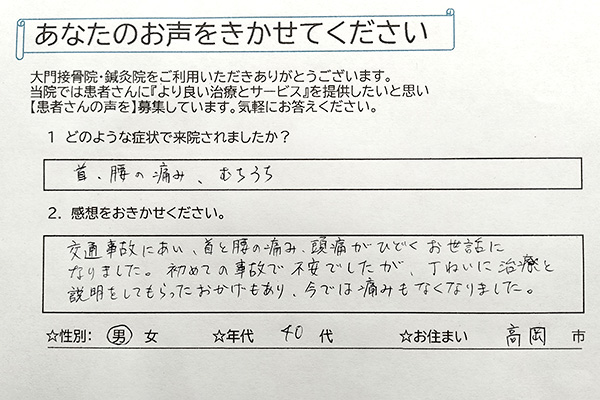 あなたのお声をきかせてください
大門接骨院・鍼灸院をご利用いただきありがとうございます。
当院では患者さんに『より良い治療とサービス』を提供したいと思い
【患者さんの声を】募集しています。気軽にお答えください。
1 どのような症状で来院されましたか？
首、腰の痛み、むちうち
2. 感想をおきかせください。
交通事故にあい、首と腰の痛み、頭痛がひどくお世話に
なりました。初めての事故で不安でしたが、丁ねいに治療と
説明をしてもらったおかげもあり、今では痛みもなくなりました。
☆性別： 男 女 ☆年代 40 代 ☆お住まい 高岡 市